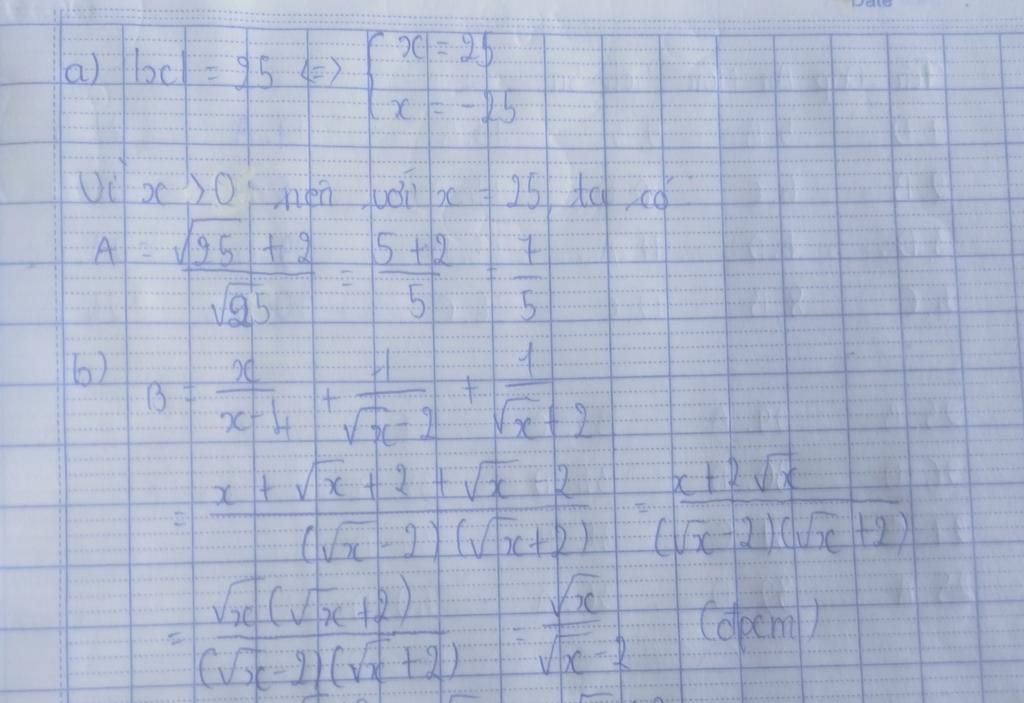 Date
a) |x| = 25 <=> { x = 25
x = -25
Vì x > 0 nên với x = 25, ta có
A = (√25 + 2)/√25 = (5 + 2)/5 = 7/5
b) B = x/(x - 4) + 1/(√x - 2) + 1/(√x + 2)
= (x + √x + 2 + √x - 2)/((√x - 2)(√x + 2)) = (x + 2√x)/((√x - 2)(√x + 2))
= (√x(√x + 2))/((√x - 2)(√x + 2)) = √x/(√x - 2) (đpcm)